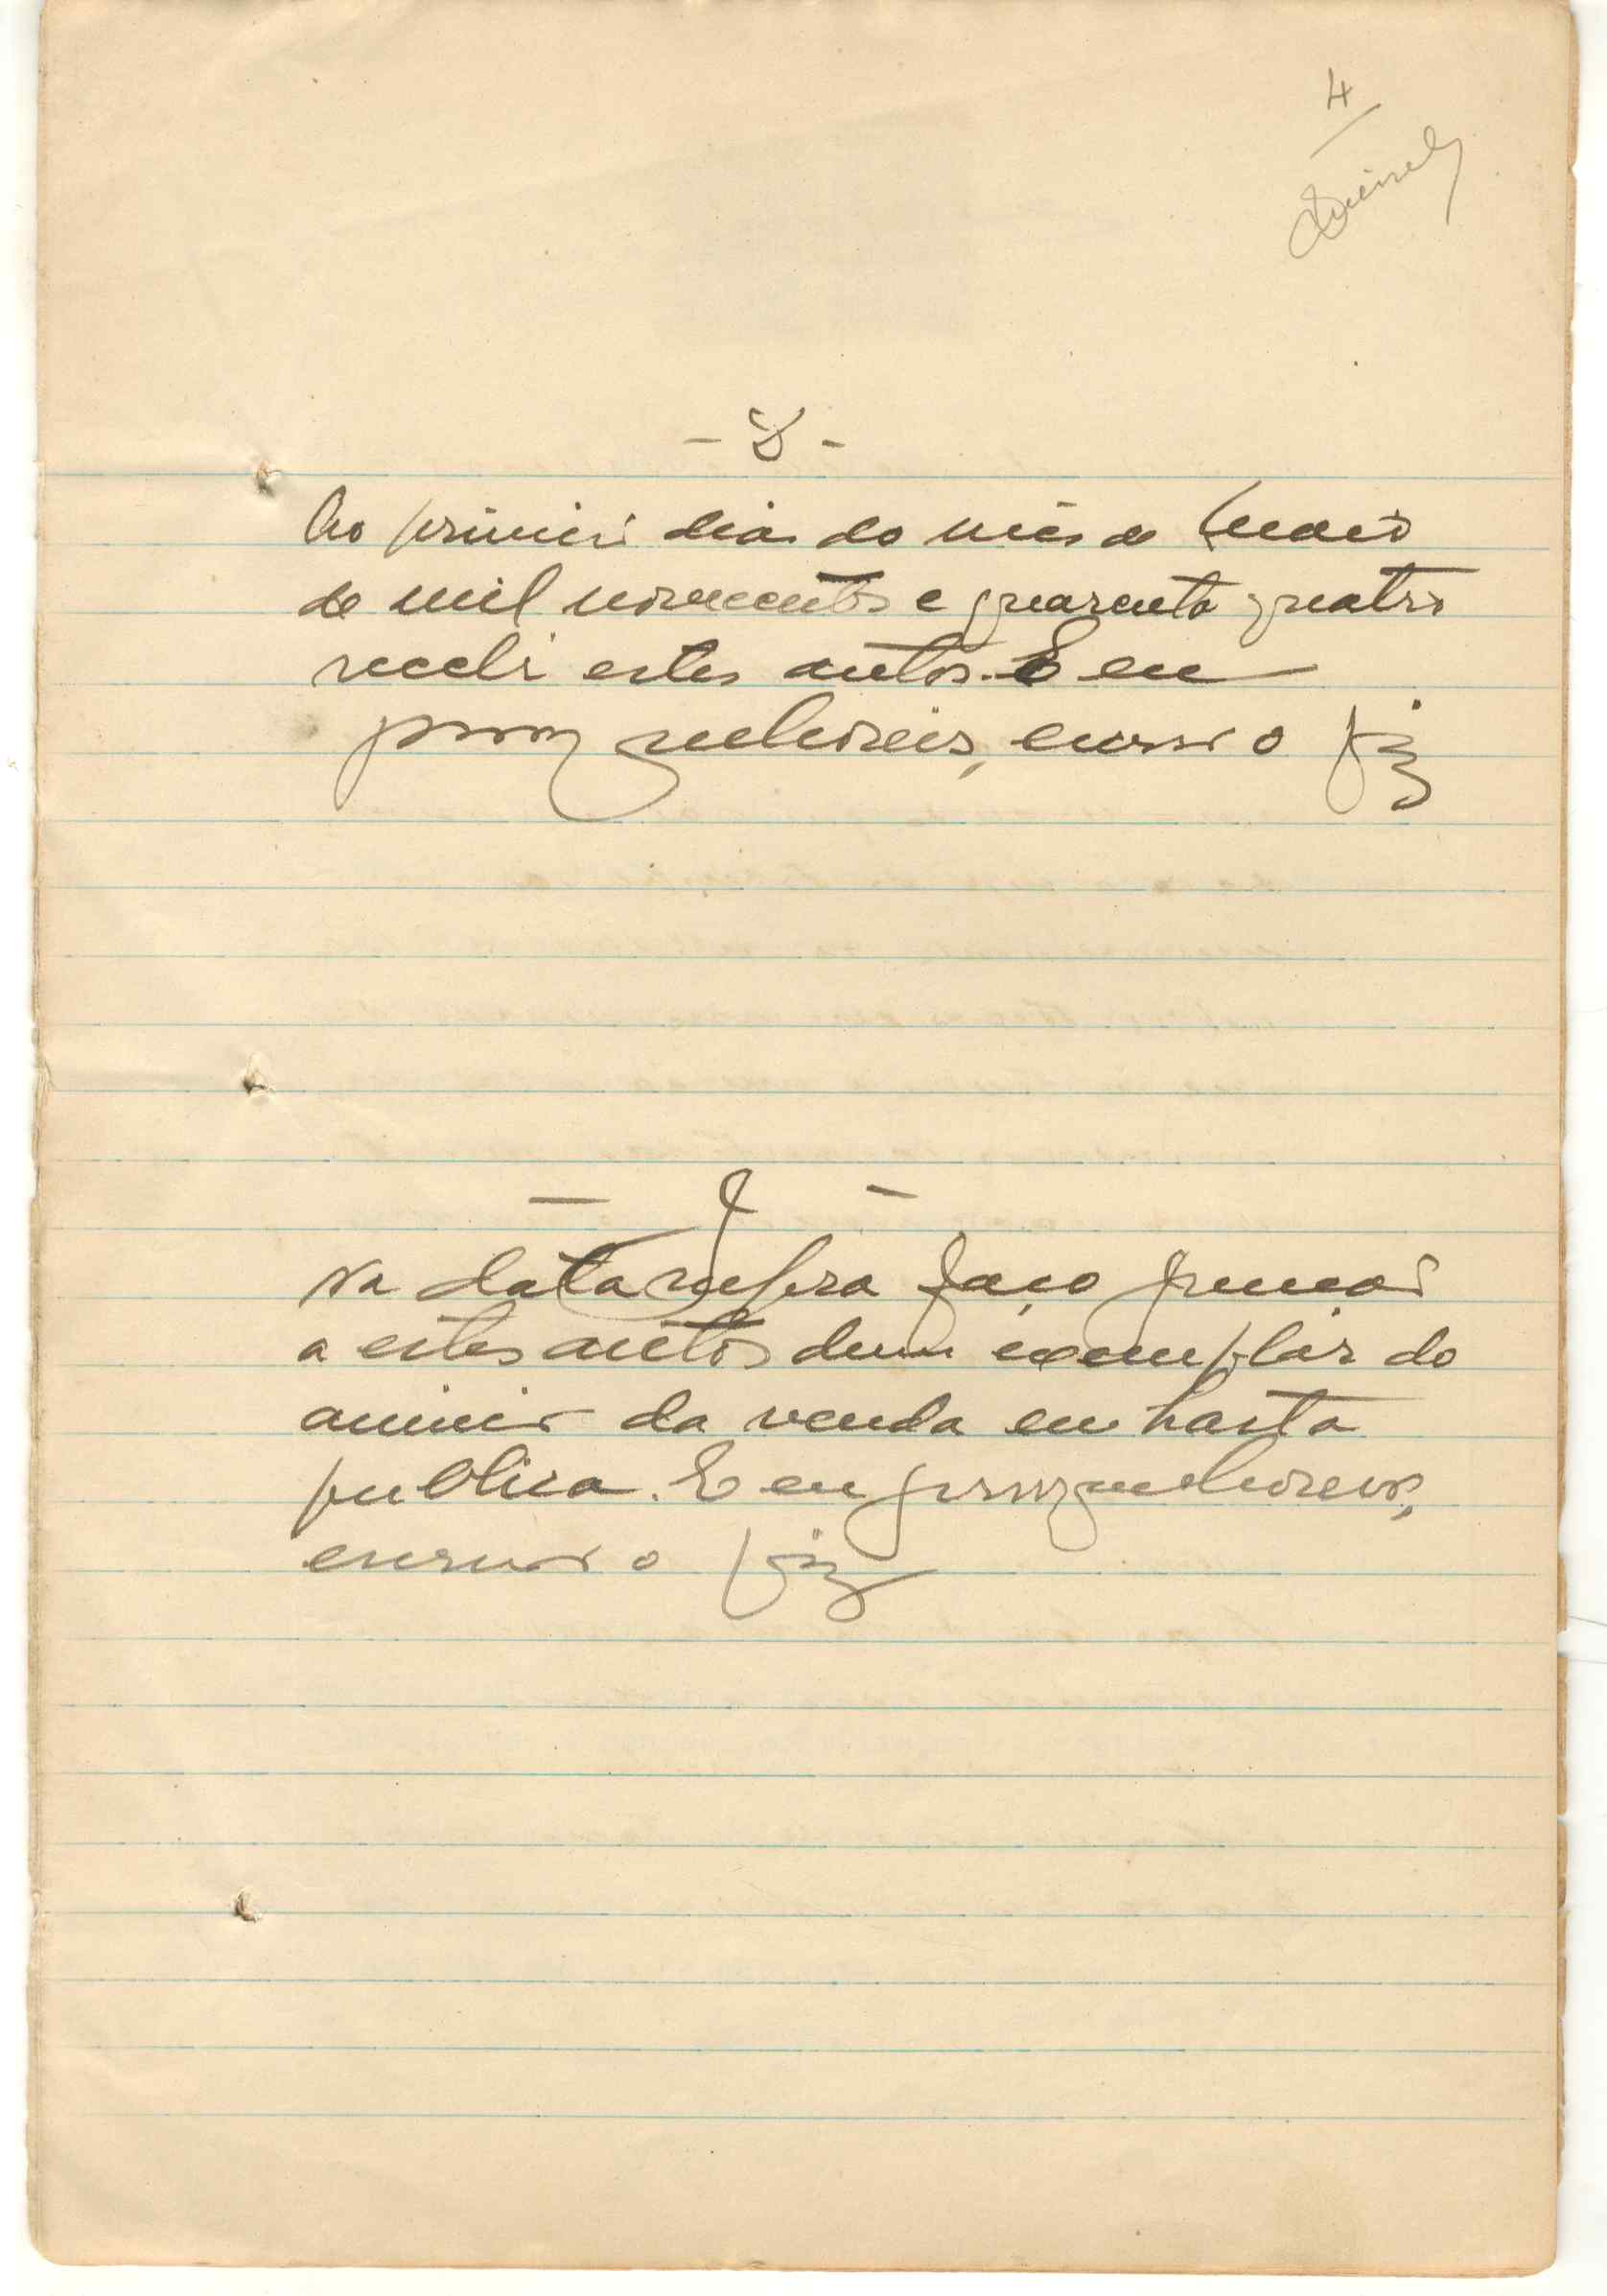 4
Ao primeiro dia do mês de Maio
de mil novecentos e quarenta quatro
recebi estes autos. E eu
escrivão o fiz
- J -
Na data supra faço junção
a estes autos dum exemplar do
anuncio da venda em hasta
publica. E eu
escrivão o fiz